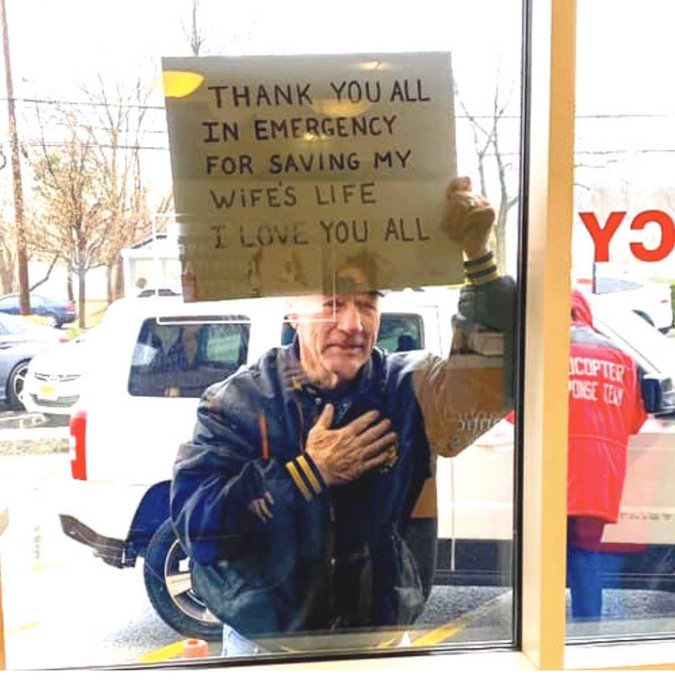 THANK YOU ALL
IN EMERGENCY
FOR SAVING MY
WIFE'S LIFE
I LOVE YOU ALL
CY
ICOPTER
PONSE TEAM